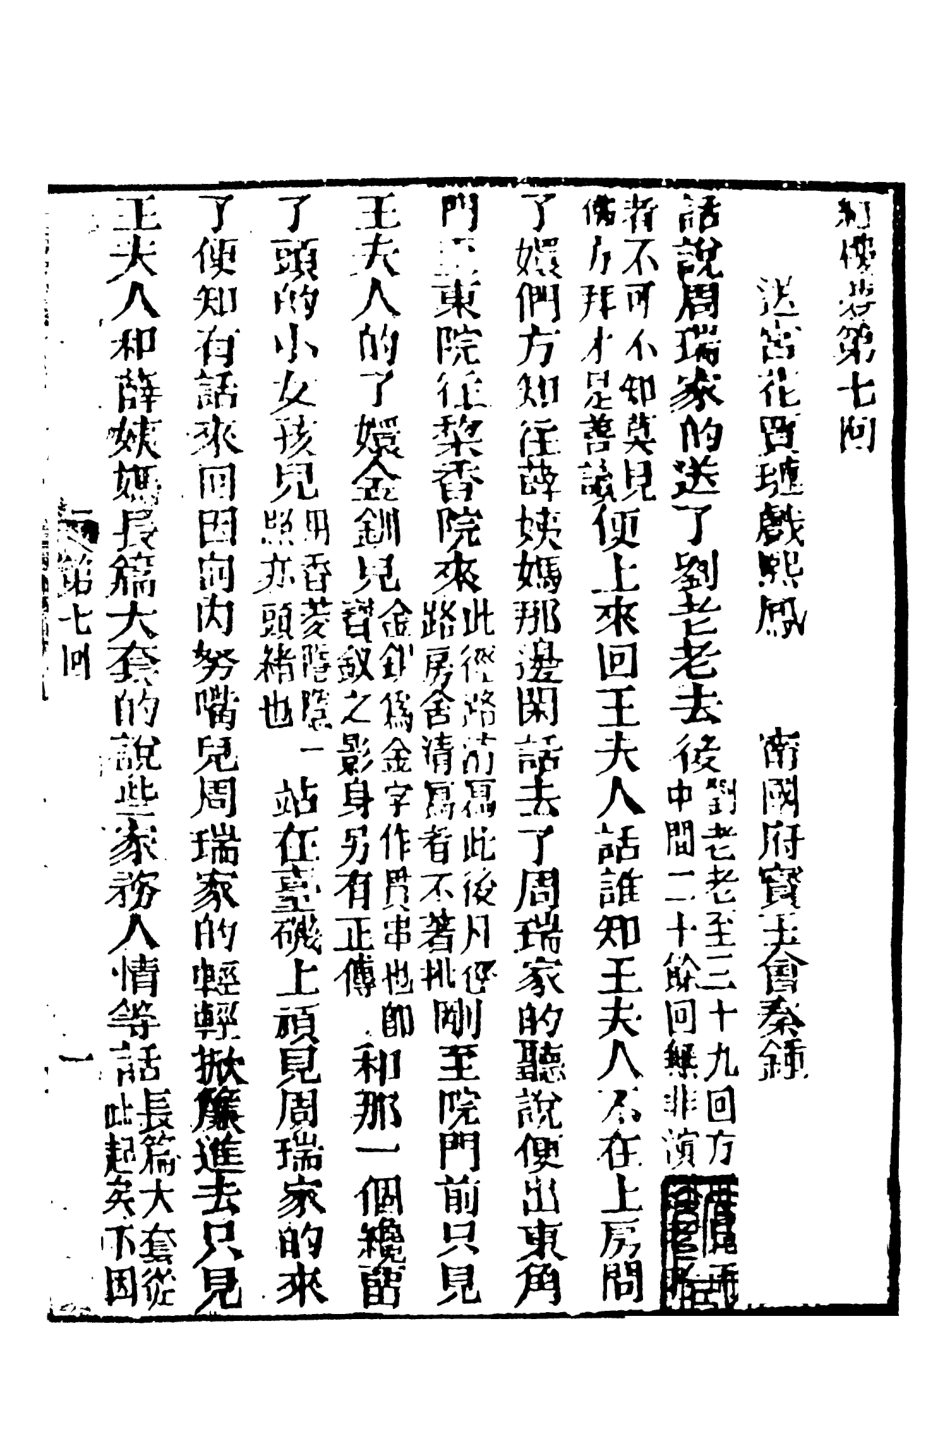 紅樓夢第七回
送宮花賈璉戲熙鳳　甯國府寶玉會秦鍾
話說周瑞家的送了劉老老去後劉老老至三十九回方
中間二十餘回無非演
者不可不知莫見
他方拜才是善讀便上來回王夫人話誰知王夫人不在上房問
了嬛們方知往薛姨媽那邊閑話去了周瑞家的聽說便出東角
門至東院往梨香院來此從路
路房舍清寫者不著批剛至院門前只見
王夫人的了嬛金釧兒金釧爲金字作貫串也卽
寶釵之影身另有正傳和那一個纔留
了頭的小女孩兒用香菱陪一
照亦頭緒也站在臺磯上頑見周瑞家的來
了便知有話來回因向內努嘴兒周瑞家的輕輕掀簾進去只見
王夫人和薛姨媽長篇大套的說些家務人情等話長篇大套從
此起矣不因
第七回
一